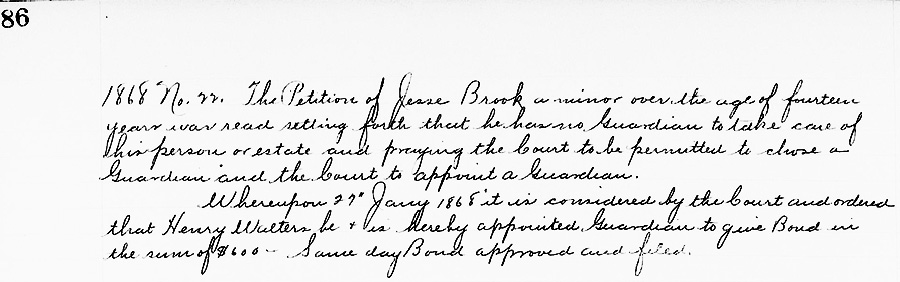 86
1868 No. 22. The Petition of Jesse Brook a minor over the age of fourteen
years was read setting forth that he has no Guardian to take care of
his person or estate and praying the Court to be permitted to chose a
Guardian and the Court to appoint a Guardian.
Whereupon 27" Jany 1868 it is considered by the Court and ordered
that Henry Walters be & is hereby appointed Guardian to give Bond in
the sum of $600 - Same day Bond approved and filed.